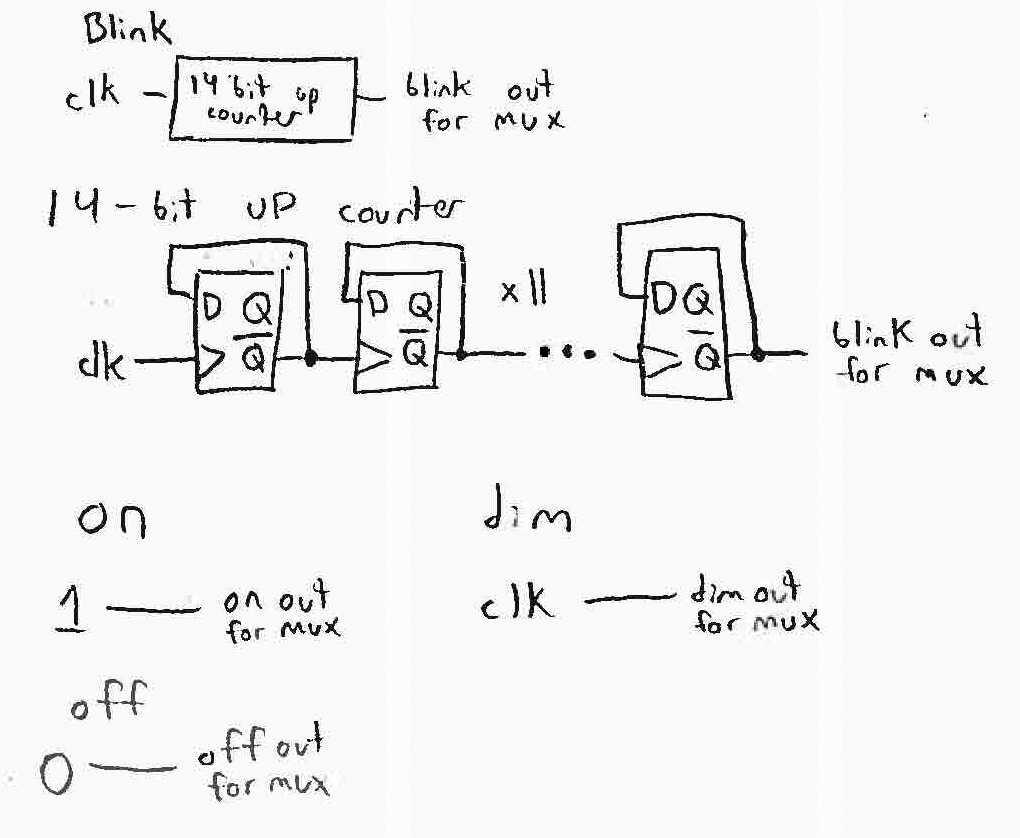 Blink
clk
14 bit up
counter
blink out
for mux
14-bit up counter
D Q
Q
D Q
Q
x11
D Q
Q
clk
blink out
for mux
on
dim
1
on out
for mux
clk
dim out
for mux
off
0
off out
for mux